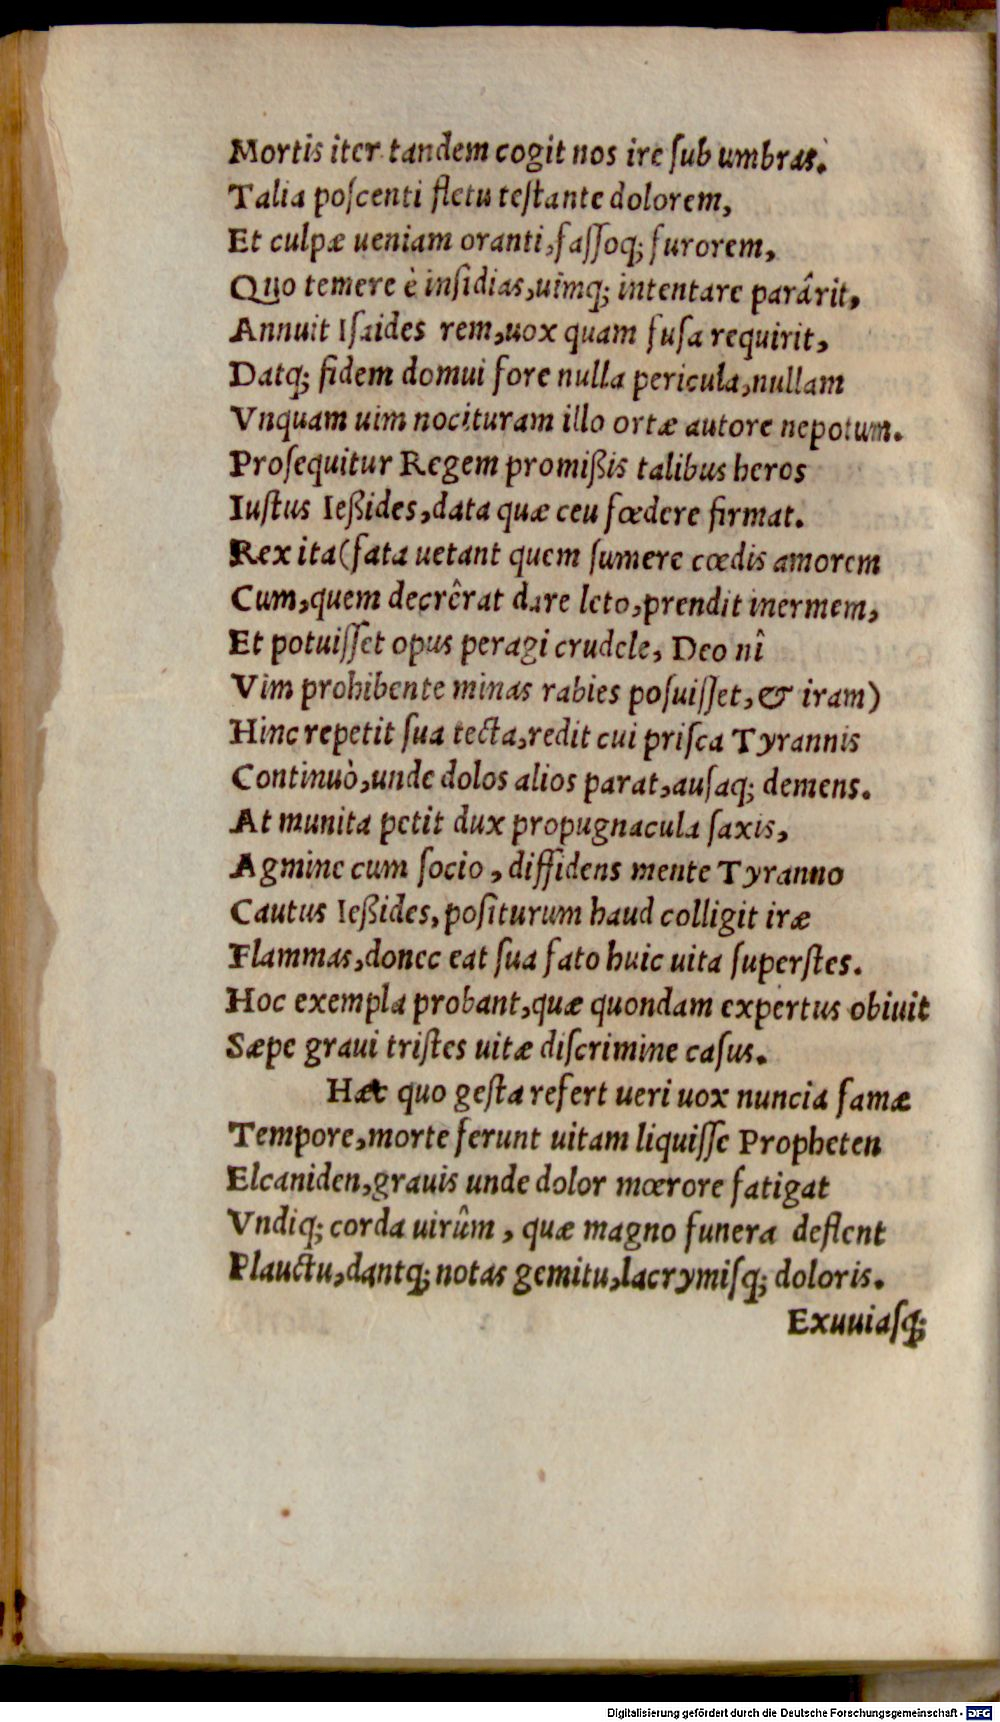 Mortis iter tandem cogit nos ire ſub umbras.
Talia poſcenti fletu teſtante dolorem,
Et culpæ ueniam oranti, faſſoq; furorem,
Quo temere è inſidias, uimq; intentare parârit,
Annuit Iſaides rem, uox quam fuſa requirit,
Datq; fidem domui fore nulla pericula, nullam
Vnquam uim nocituram illo ortæ autore nepotum.
Proſequitur Regem promißis talibus heros
Iuſtus Ießides, data quæ ceu fœdere firmat.
Rex ita (fata uetant quem ſumere cœdis amorem
Cum, quem decrêrat dare leto, prendit inermem,
Et potuiſſet opus peragi crudele, Deo nî
Vim prohibente minas rabies poſuiſſet, & iram)
Hinc repetit ſua tecta, redit cui priſca Tyrannis
Continuò, unde dolos alios parat, auſaq; demens.
At munita petit dux propugnacula ſaxis,
Agmine cum ſocio, diffidens mente Tyranno
Cautus Ießides, poſiturum haud colligit iræ
Flammas, donec eat ſua fato huic uita ſuperſtes.
Hoc exempla probant, quæ quondam expertus obiuit
Sæpe graui triſtes uitæ diſcrimine caſus.
Hæc quo geſta refert ueri uox nuncia famæ
Tempore, morte ferunt uitam liquiſſe Propheten
Elcaniden, grauis unde dolor mœrore fatigat
Vndiq; corda uirûm, quæ magno funera deflent
Planctu, dantq; notas gemitu, lacrymiſq; doloris.
Exuuiaſq;
Digitalisierung gefördert durch die Deutsche Forschungsgemeinschaft - DFG